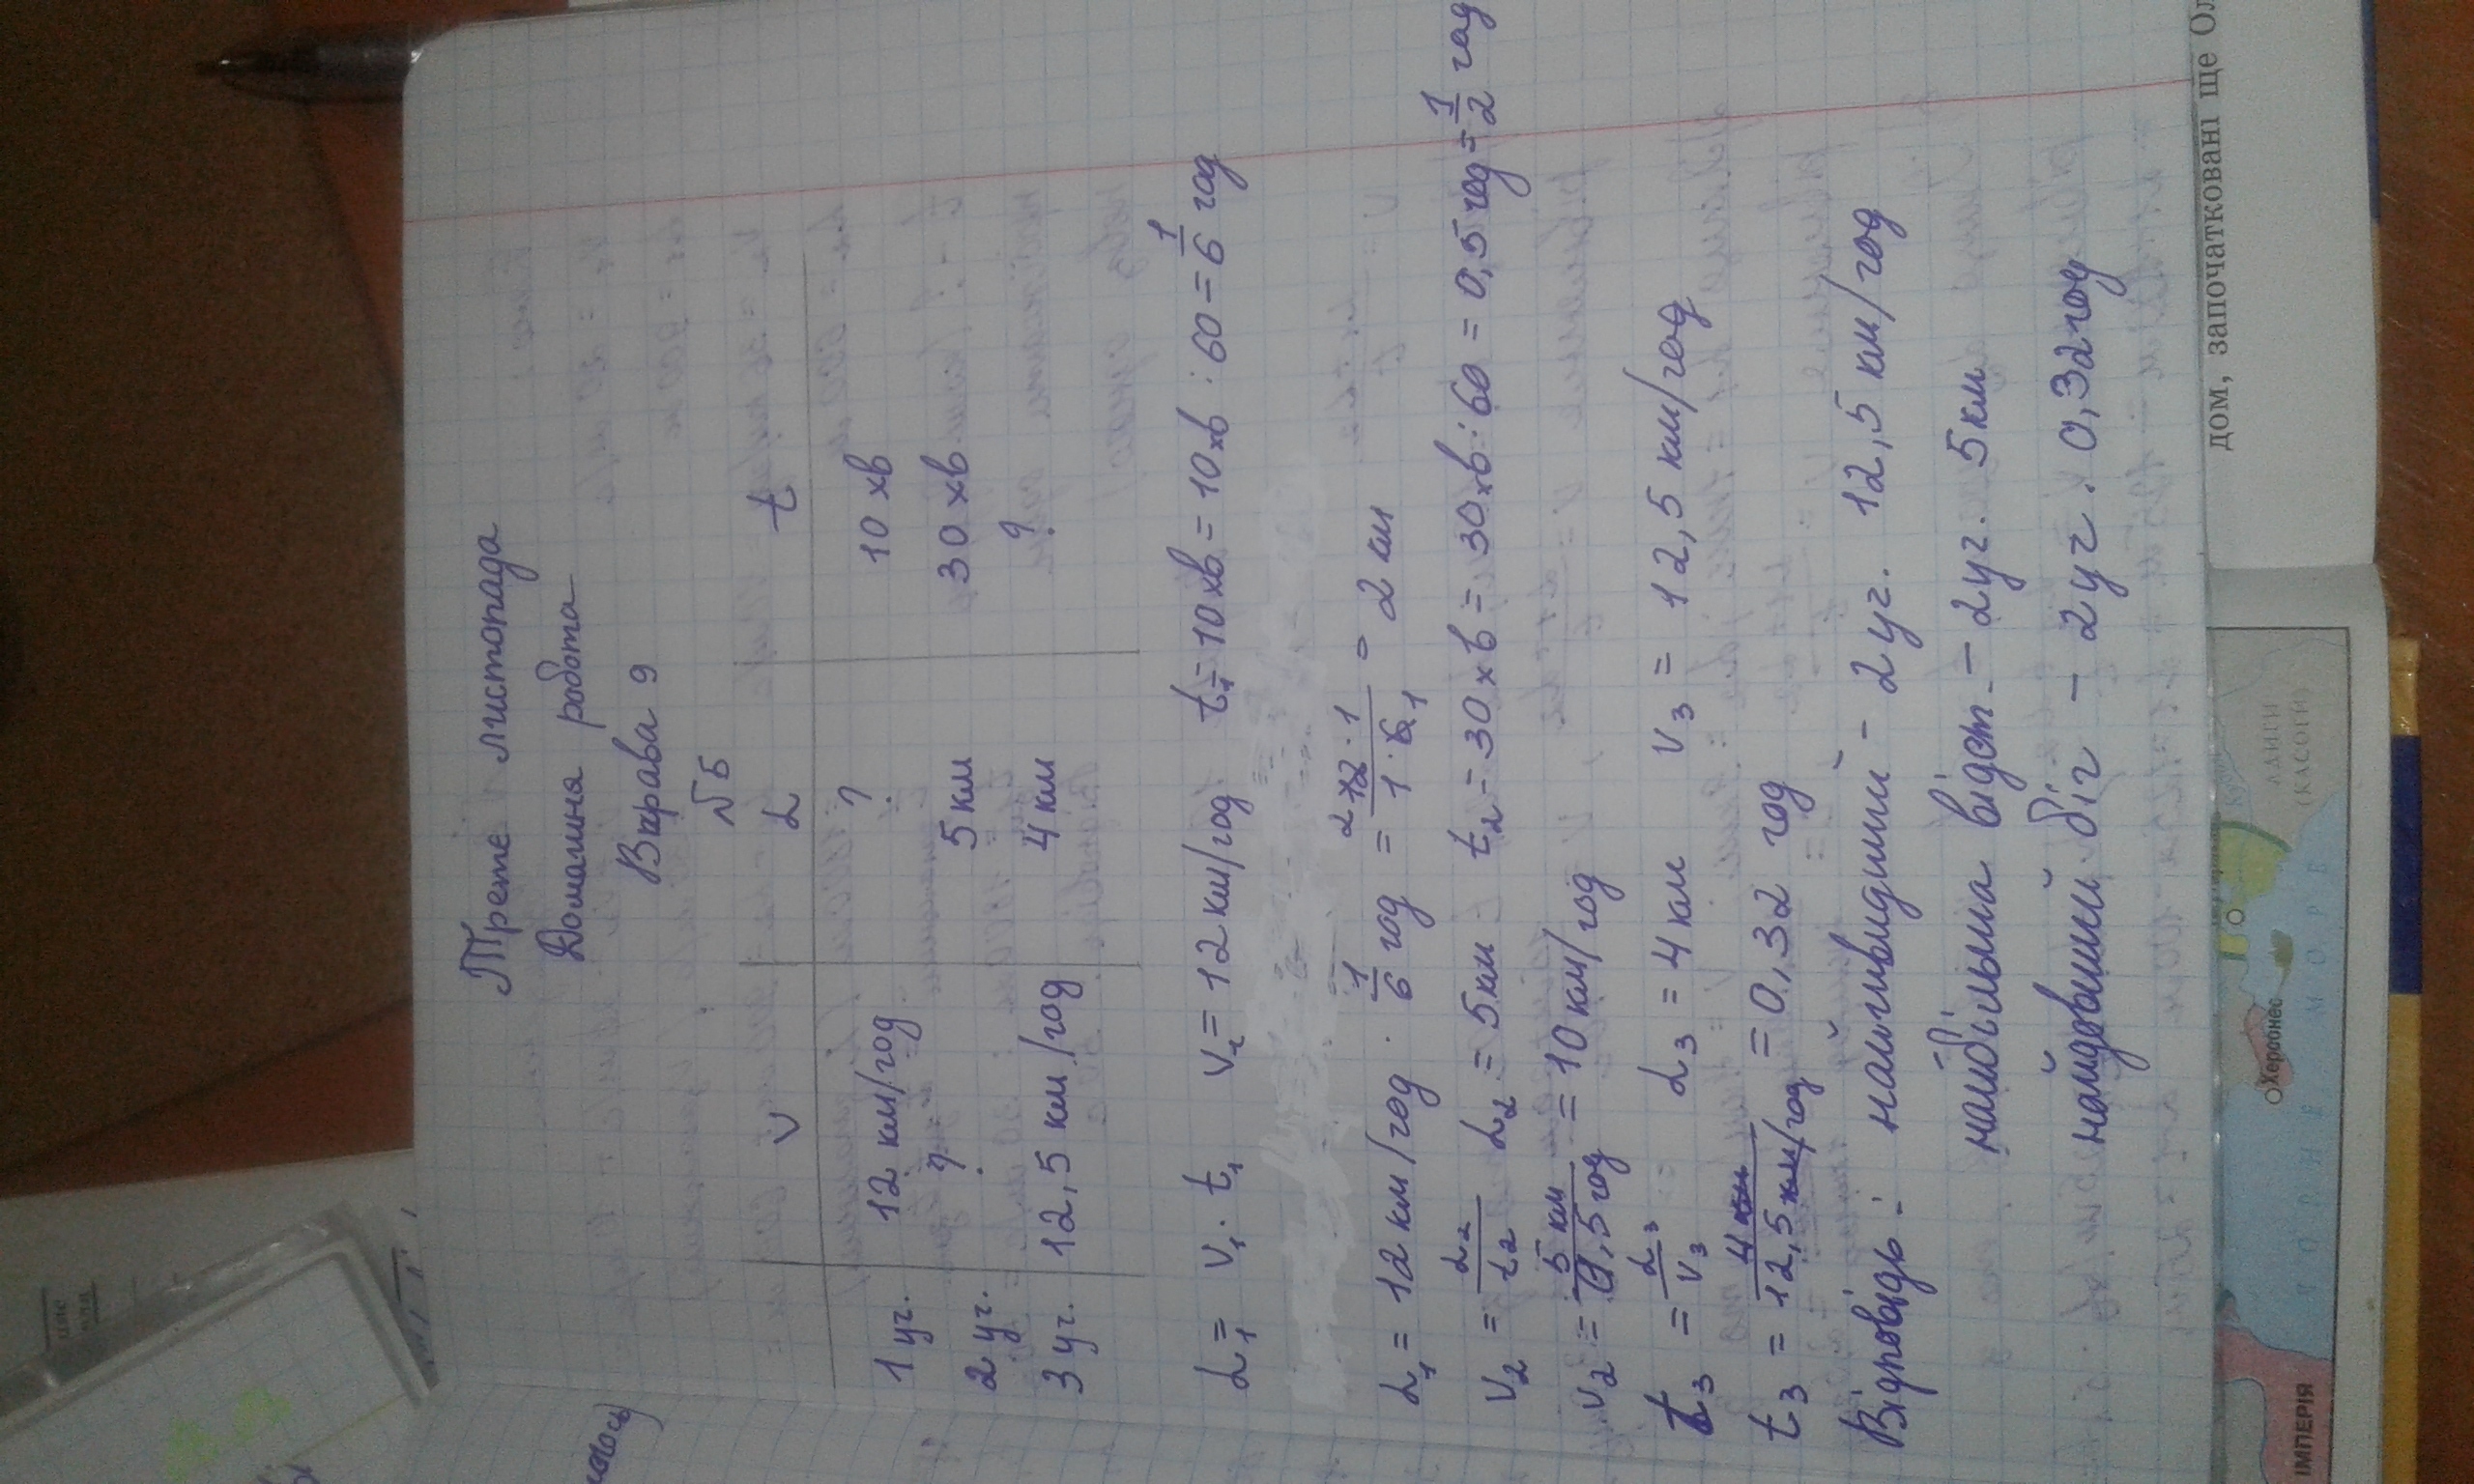 Третє листопада
Домашня робота
Вправа 9
№5
V L t
1 уч. 12 км/год ? 10 хв
2 уч. ? 5 км 30 хв
3 уч. 12,5 км/год 4 км ?
L₁ = V₁ · t₁ V₁ = 12 км/год t₁ = 10 хв = 10 хв : 60 = 1/6 год
L₁ = 12 км/год · 1/6 год = 12 2 · 1 / 1 · 6 1 = 2 км
V₂ = L₂/t₂ L₂ = 5 км t₂ = 30 хв = 30 хв : 60 = 0,5 год = 1/2 год
V₂ = 5 км/0,5 год = 10 км/год
t₃ = L₃/V₃ L₃ = 4 км V₃ = 12,5 км/год
t₃ = 4 км/12,5 км/год = 0,32 год
Відповідь: найшвидший - 2 уч. 12,5 км/год
найбільша відст. - 2 уч. 5 км
найдовший біг - 2 уч. 0,32 год
дом, започатковані ще Ол
ЛАНГИ
(КАСОГИ)
Херсонес
МПЕРІЯ